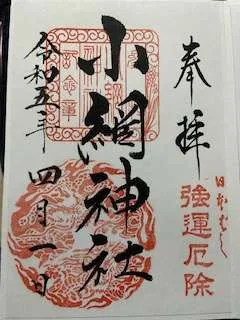 奉拝
日本ばし
強運厄除
小網神社
令和五年
四月一日